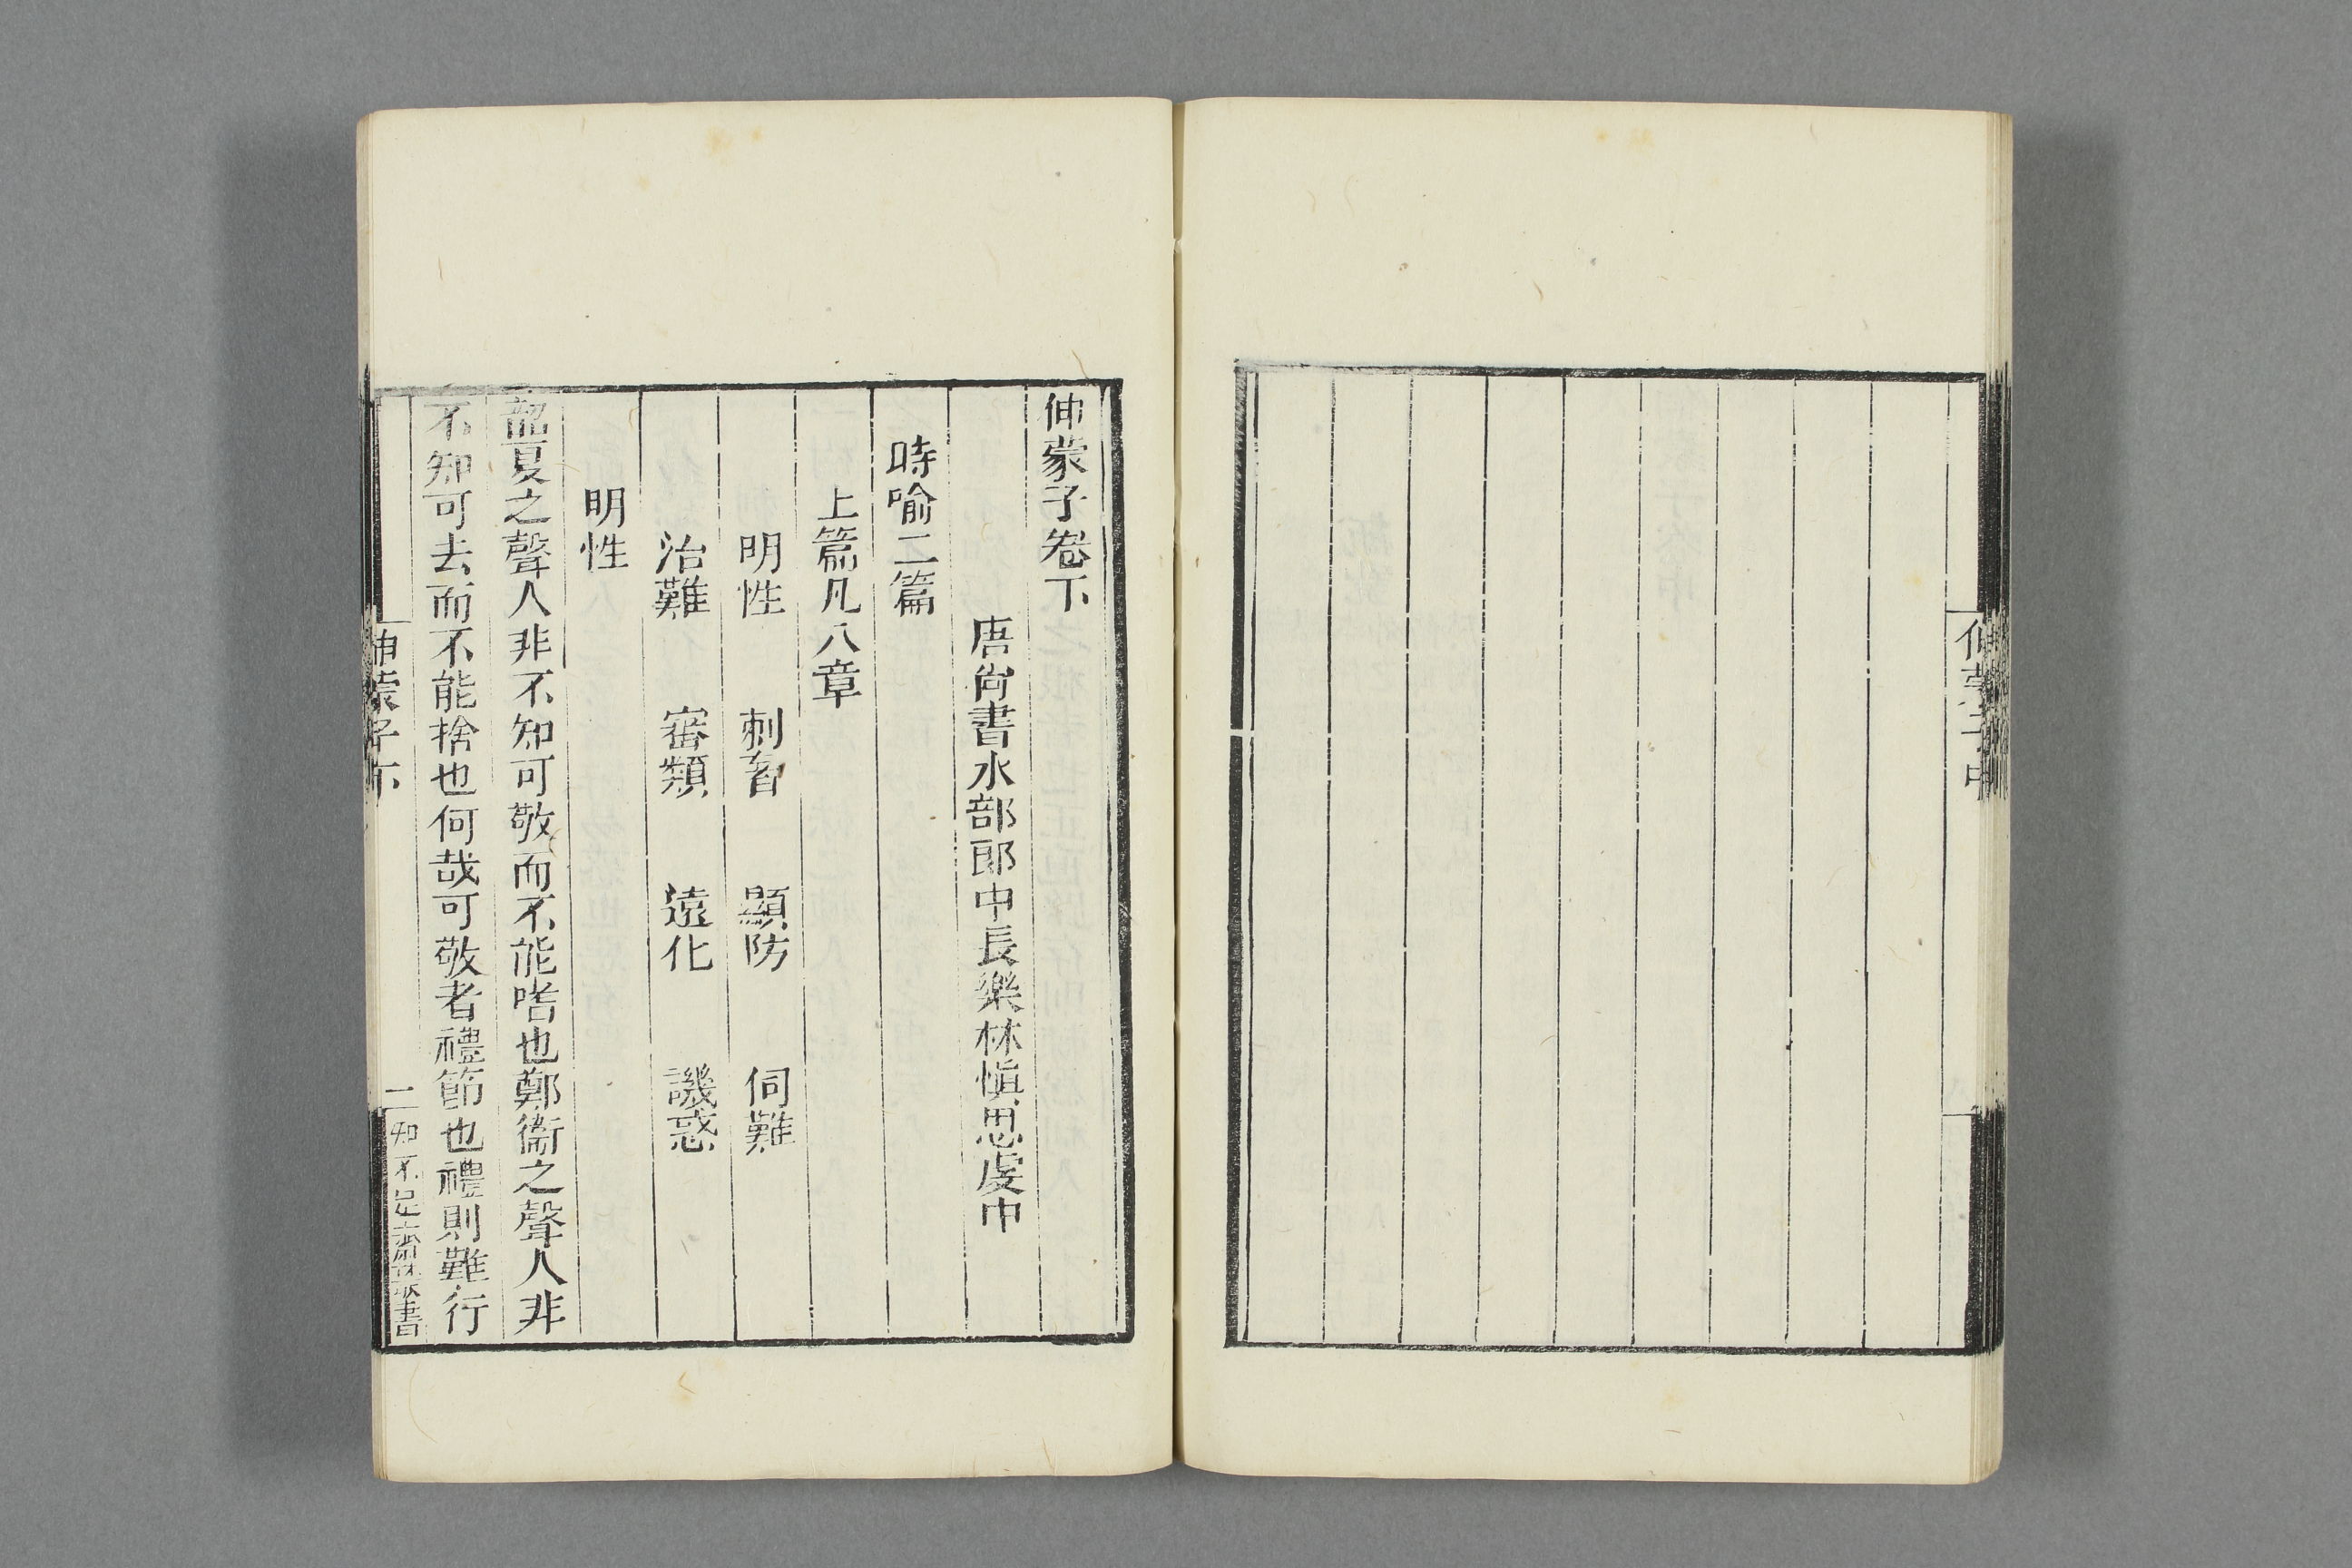 伸蒙子中
伸蒙子卷下
唐尙書水部郎中長樂林愼思虔中
時喻二篇
上篇凡八章
明性 刺奢 顯防 伺難
治難 審類 遠化 譏惑
明性
韶夏之聲人非不知可敬而不能嗜也鄭衞之聲人非
不知可去而不能捨也何哉可敬者禮節也禮則難行
伸蒙子下
一知不足齋叢書